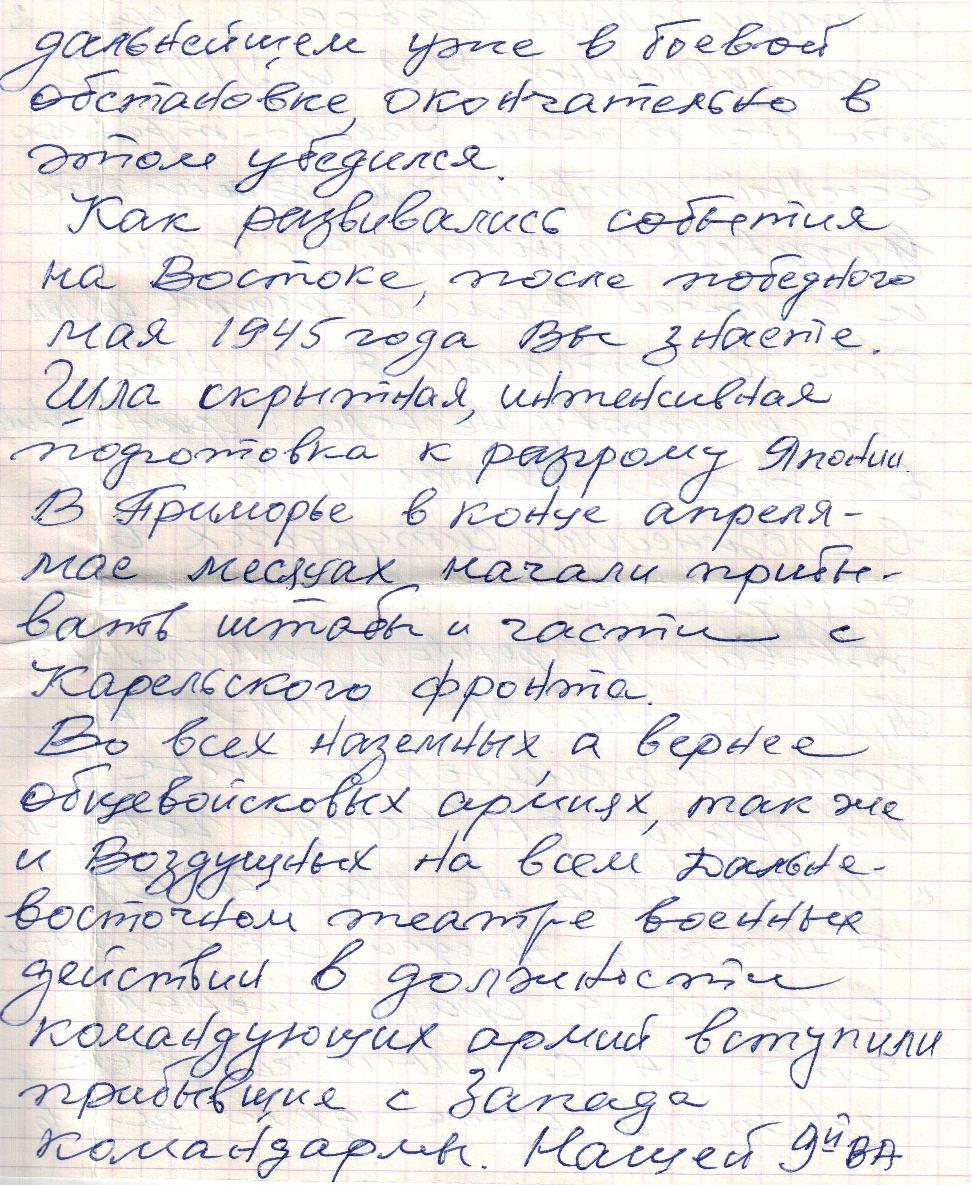 дальнейшем уже в боевой
обстановке, окончательно в
этом убедился.
Как развивались события
на Востоке, после победного
мая 1945 года Вы знаете.
Шла скрытная, интенсивная
подготовка к разгрому Японии.
В Приморье в конце апреля-
мае месяцах начали прибы-
вать штабы и части с
Карельского фронта.
Во всех наземных, а вернее
общевойсковых армиях, так же
и Воздушных на всем Дальне-
восточном театре военных
действий в должности
командующих армий вступили
прибывшие с Запада
командармы. Нашей 9й ВА